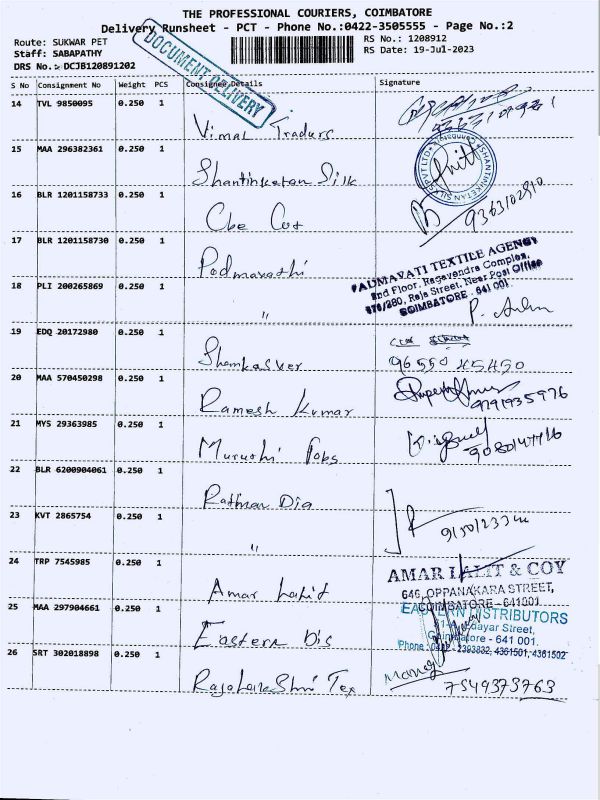 THE PROFESSIONAL COURIERS, COIMBATORE
Delivery Runsheet - PCT - Phone No.:0422-3505555 - Page No.:2
Route: SUKWAR PET
RS No.: 1208912
Staff: SABAPATHY
RS Date: 19-Jul-2023
DRS No.: DCJB120891202
DOCUMENT DELIVERY
S No Consignment No Weight PCS Consignee Details Signature
14 TVL 9850095 0.250 1 Vimal Traders
15 MAA 296382361 0.250 1 Shantinketan Silk
SHANTINIKETAN SILKS PVT LTD
16 BLR 1201158733 0.250 1 Cbe Cot 9363102910
17 BLR 1201158730 0.250 1 Padmavathi
PADMAVATI TEXTILE AGENCY
2nd Floor, Ragavendra Complex,
Raja Street, Near Post Office
COIMBATORE - 641 001.
18 PLI 200265869 0.250 1 "
19 EDQ 20172980 0.250 1 96550 45450
20 MAA 570450298 0.250 1 Ramesh Kumar 9791935976
21 MYS 29363985 0.250 1
22 BLR 6200904061 0.250 1
23 KVT 2865754 0.250 1 "
24 TRP 7545985 0.250 1 Amar
AMAR LALIT & COY
646, OPPANAKARA STREET,
COIMBATORE - 641001
25 MAA 297904661 0.250 1 Eastern Dis
EASTERN DISTRIBUTORS
Street,
Coimbatore - 641 001.
Phone : 0422 - 2393832, 4361501, 4361502
26 SRT 302018898 0.250 1 Rajalakshmi Tex 7549373763